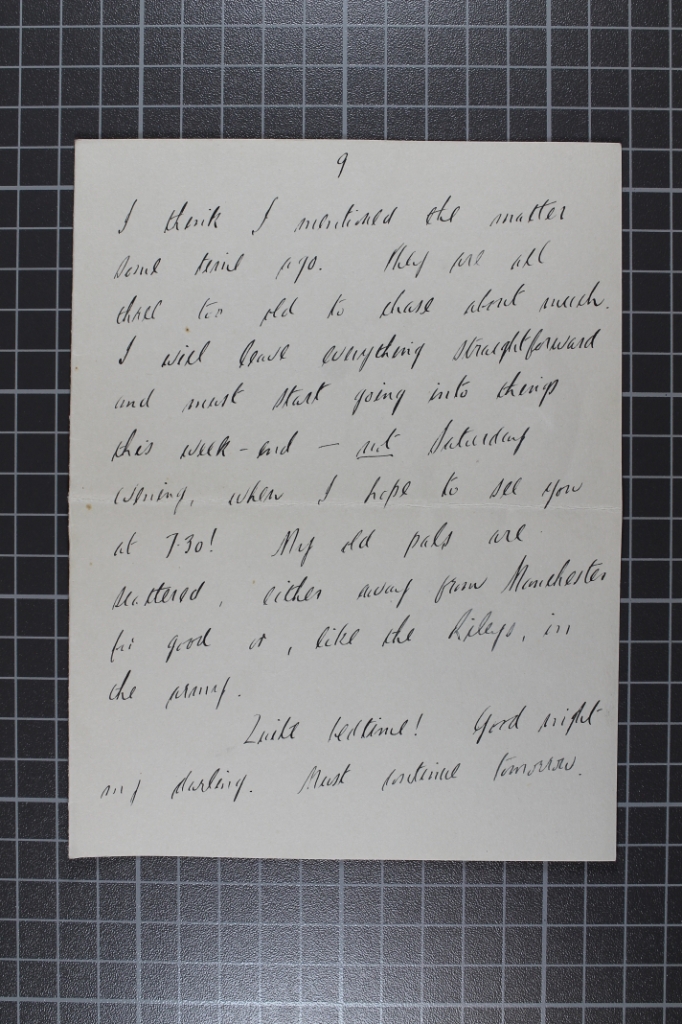 9
I think I mentioned the matter
some time ago. They are all
three too old to chase about much.
I will leave everything straightforward
and must start going into things
this week-end — not Saturday
evening, when I hope to see you
at 7.30! My old pals are
scattered, either away from Manchester
for good or, like the Rileys, in
the army.
Quite bedtime! Good night
my darling. Must continue tomorrow.